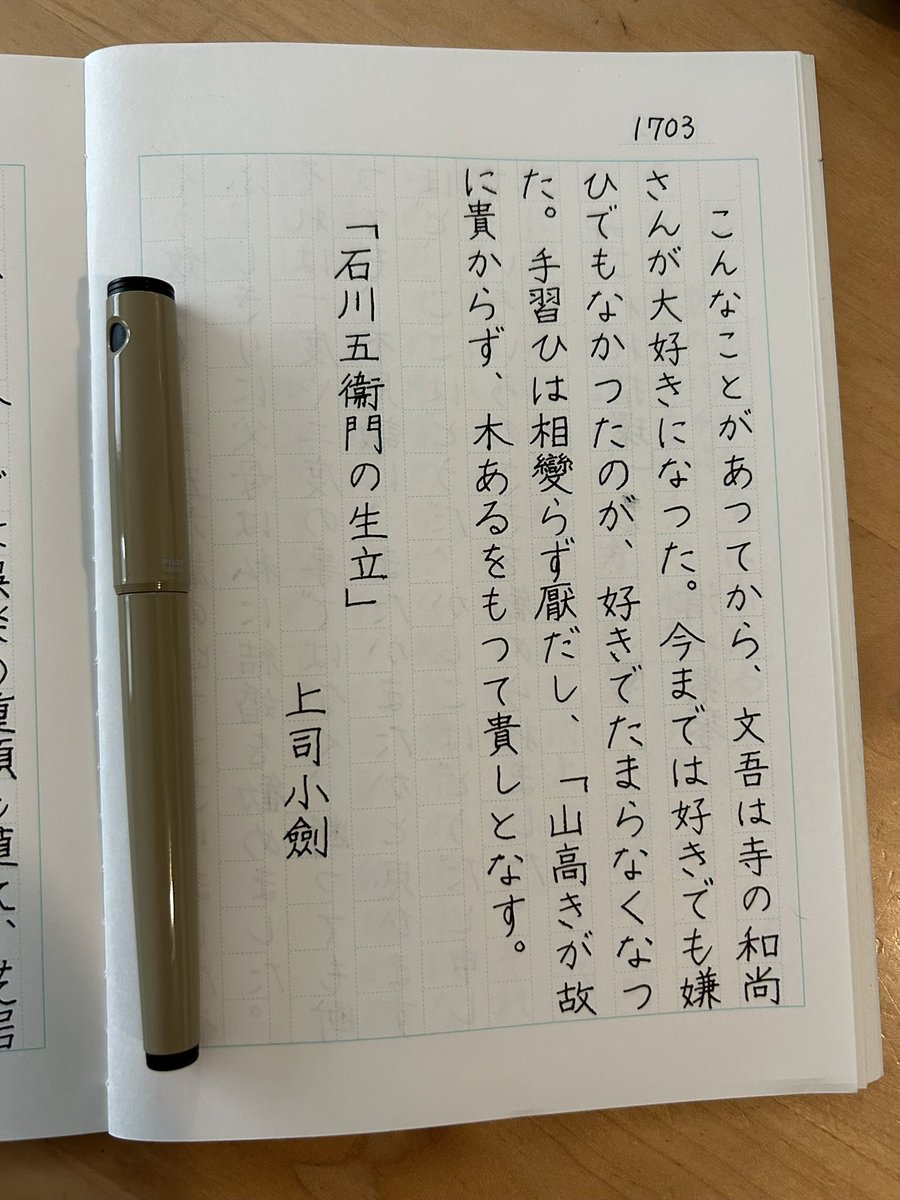 1703
こんなことがあつてから、文吾は寺の和尚
さんが大好きになつた。今までは好きでも嫌
ひでもなかつたのが、好きでたまらなくなつ
た。手習ひは相變らず厭だし、「山高きが故
に貴からず、木あるをもつて貴しとなす。
「石川五衞門の生立」
上司小劍
PILOT